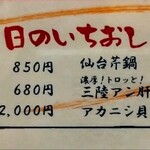 日のいちおし
850円 仙台芹鍋
濃厚!トロッと!
680円 三陸アン肝
2,000円 アカニシ貝